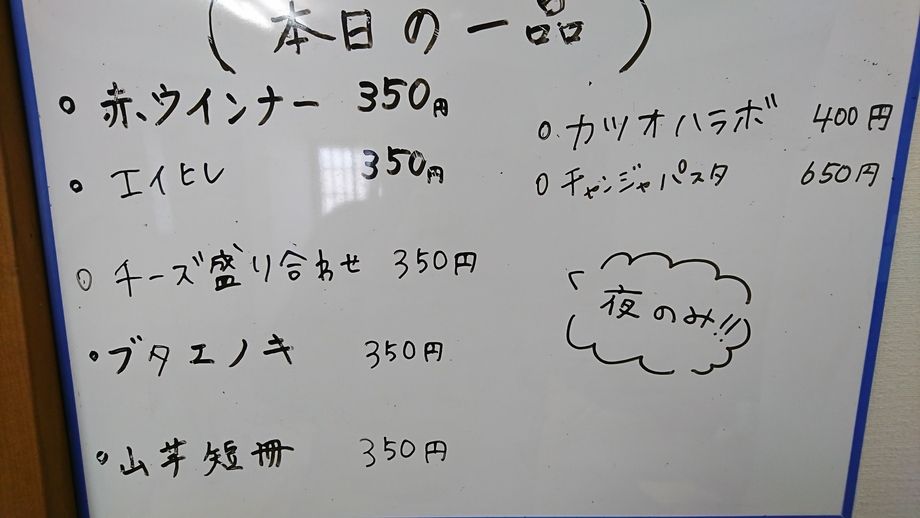 (本日の一品)
○ 赤ウインナー 350円
○ エイヒレ 350円
○ チーズ盛り合わせ 350円
○ ブタエノキ 350円
○ 山芋短冊 350円
○ カツオハラボ 400円
○ チャンジャパスタ 650円
夜のみ!!